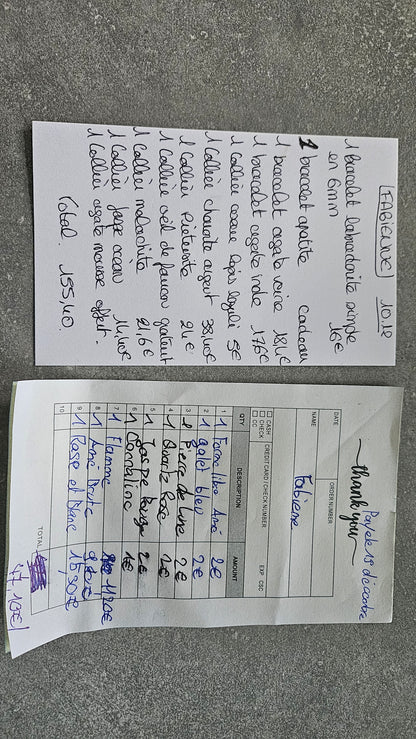 FABIENNE 10.12
1 Bracelet labradorite inde
en 6mm 16€
1 bracelet apatite cadeau
1 bracelet agate noire 18,4€
1 bracelet agate inde 17,6€
1 Collier coeur lapis lazuli 5€
1 Collier charoite argent 38,40€
1 Collier Pietersite 24€
1 Collier œil de faucon gratuit
1 Collier malachite 21,6€
1 Collier jaspe océan 14,40€
1 Collier agate mousse offert.
Total. 155,40
Payé le 18 décembre
thank you
DATE ORDER NUMBER
NAME
Fabienne
CASH CREDIT CARD / CHECK NUMBER EXP CSC
CHECK
CC
QTY DESCRIPTION AMOUNT
1 1 Forme libre Amé 2€
2 1 galet bleu 2€
3 1 Pierre de Lune 2€
4 1 Quartz Rose 2€
5 1 Jaspe Rouge 2€
6 1 Cornaline 1€
7 1 Flamme 11,20€
8 1 Amé Brute
9 1 Rose et Blanc 15,90€
10
TOTAL
47,10€